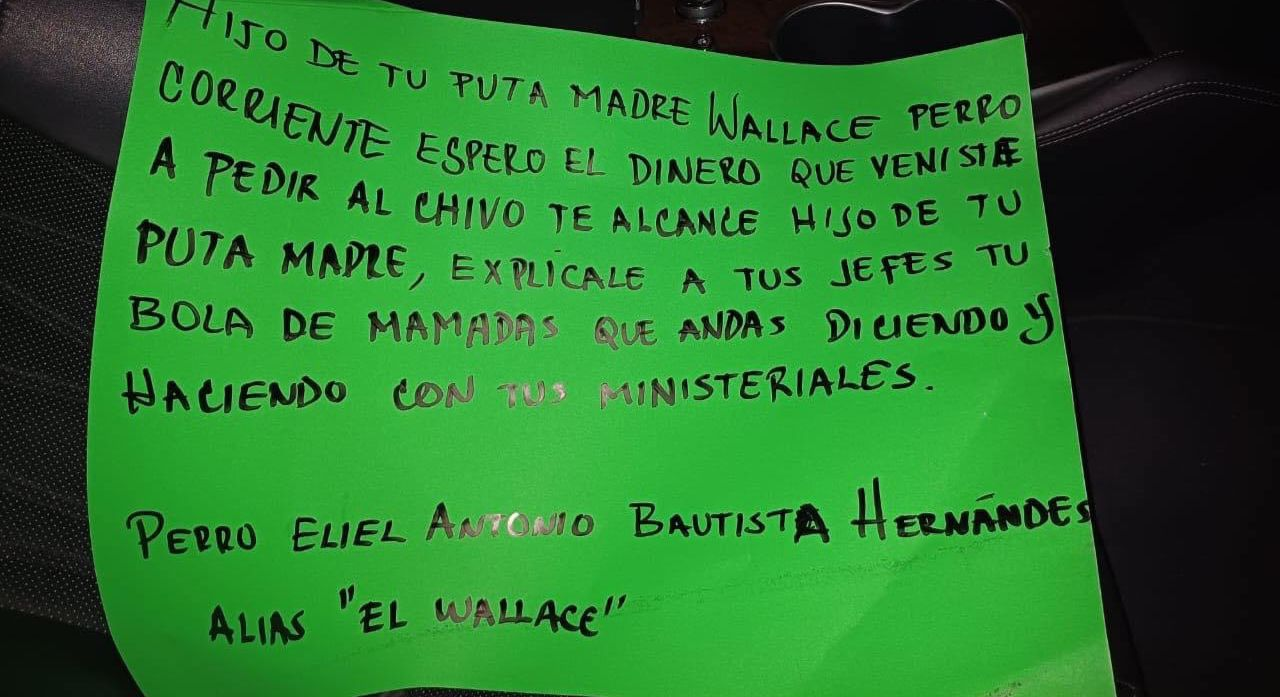 HIJO DE TU PUTA MADRE WALLACE PERRO
CORRIENTE ESPERO EL DINERO QUE VENISTE
A PEDIR AL CHIVO TE ALCANCE HIJO DE TU
PUTA MADRE, EXPLÍCALE A TUS JEFES TU
BOLA DE MAMADAS QUE ANDAS DICIENDO Y
HACIENDO CON TUS MINISTERIALES.
PERRO ELIEL ANTONIO BAUTISTA HERNÁNDES
ALIAS "EL WALLACE"